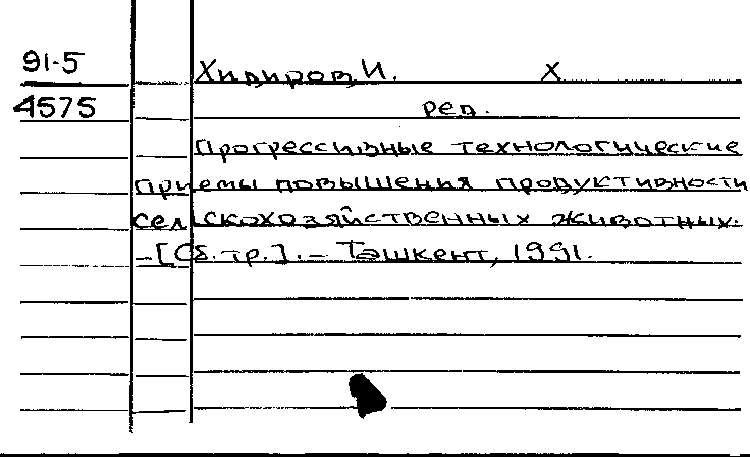 91-5
Хидиров, И. Х.
4575
ред.
Прогрессивные технологические
приемы повышения продуктивности
сельскохозяйственных животных.
-[Сб. тр.]. - Ташкент, 1991.